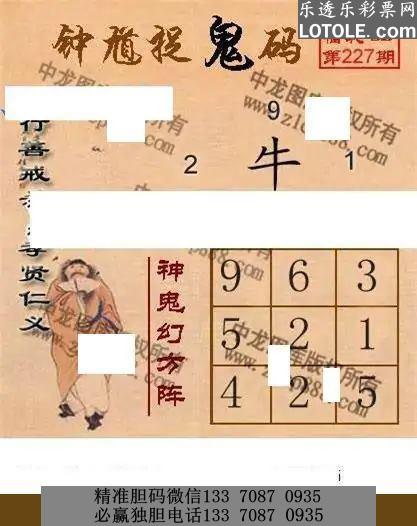 乐透乐彩票网
LOTOLE.COM
钟馗捉鬼码
第227期
9
2 牛 1
行善戒
孝贤仁义
神鬼幻方阵
9 6 3
5 2 1
4 2 5
中龙图库版权所有
精准胆码微信133 7087 0935
必赢独胆电话133 7087 0935